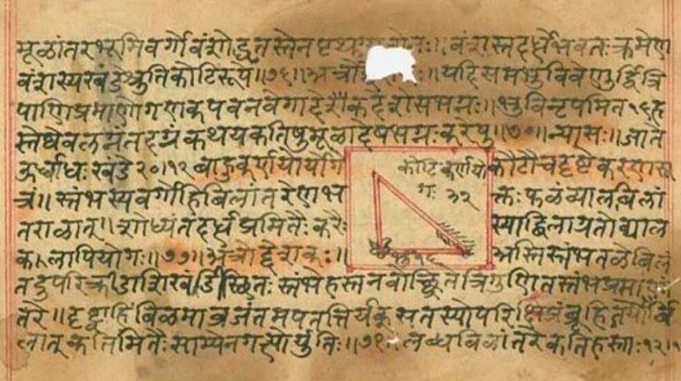 मूळांतरभूमिवर्गो वंशोद्धृतस्तेन पृथग् नः।। वंशस्तदर्धे भवतः क्रमेण
वंशस्य खंडे श्रुतिकोटिरूपे।।७६।। अत्रो ः।। यदि समभुवि वेणुर्द्वित्रि
पाणिप्रमाणो गणक पवनवेगादेरेकदेशे स भग्नः।। भुवि नृपमित १६ ह
स्तेष्वंग लग्नं तदग्रं कथय कतिषु मूळादेष भग्नः करेषु।।७०।। न्यासः।। जात
ऊर्ध्वाधः खंडे २०।१२ बाहुकर्णयोर्योगे कोटिकर्णयो कोटौ च दृष्टे करणसू
त्रं।। स्तंभस्य वर्गोहिबिलांतरेण भ गः ३२ क्तः फळं व्यालबिलां
तराळात्।। शोध्यं तदर्धप्रमितैः करैः स्याद्बिलाग्रतो व्याल
कलापियोगः।।७७।। अत्रोद्देशकः।। अस्ति स्तंभतळे बिलं
तदुपरि क्रीडाशिखंडी स्थितः स्तंभे हस्तनवोच्छ्रिते त्रिगुणित स्तंभप्रमाणां
तरे।। दृष्ट्वाहिं बिळमाव्रजंतमपतत्तिर्यक् स तस्योपरि क्षिप्रं ब्रूहि तयोर्बि
लात् कतिमितैः साम्येन गत्योर्युतिः।।७१।। लब्धबिलांतरे कतिहस्ताः १२।।